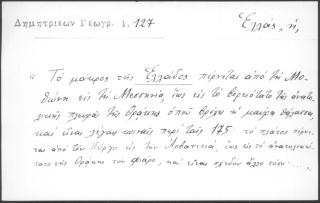 Δημητριεων Γεωγρ. 1, 127
Ἑλλάς, ἡ,
"Τὸ μακρος τῆς Ἑλλάδος πέρνεται ἀπὸ τὴν Μο-
θώνη εἰς τὴν Μεσσηνία, ἕως εἰς τὸ βορειότατο τῆς ἀνατο-
λικῆς πλευρᾶς τῆς Θράκης ὁποῦ βρέχει ἡ μαύρη θάλασσα,
καὶ εἶναι λέγας κοιναῖς περὶ ταῖς 175. τὸ πλάτος πέρνε-
ται ἀπὸ τὸν Πύργο εἰς τὴν Ἀρβανιτιά, ἕως εἰς τὸ ἀνατολικώ-
τατο τῆς Θράκης τὸν Φάρο, καὶ εἶναι σχεδὸν ἄλλο τόσο....